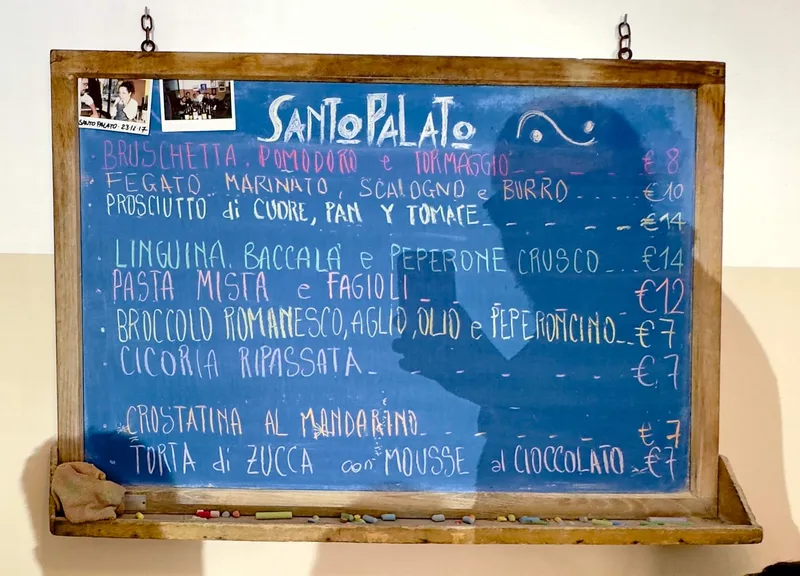 SANTO PALATO
SANTO PALATO · 23·11·17
BRUSCHETTA. POMODORO e FORMAGGIO €8
FEGATO MARINATO, SCALOGNO e BURRO €10
PROSCIUTTO di CUORE, PAN Y TOMATE €14
LINGUINA. BACCALÀ e PEPERONE CRUSCO €14
PASTA MISTA e FAGIOLI €12
BROCCOLO ROMANESCO, AGLIO, OLIO e PEPERONCINO €7
CICORIA RIPASSATA €7
CROSTATINA AL MANDARINO €7
TORTA di ZUCCA con MOUSSE al CIOCCOLATO €7